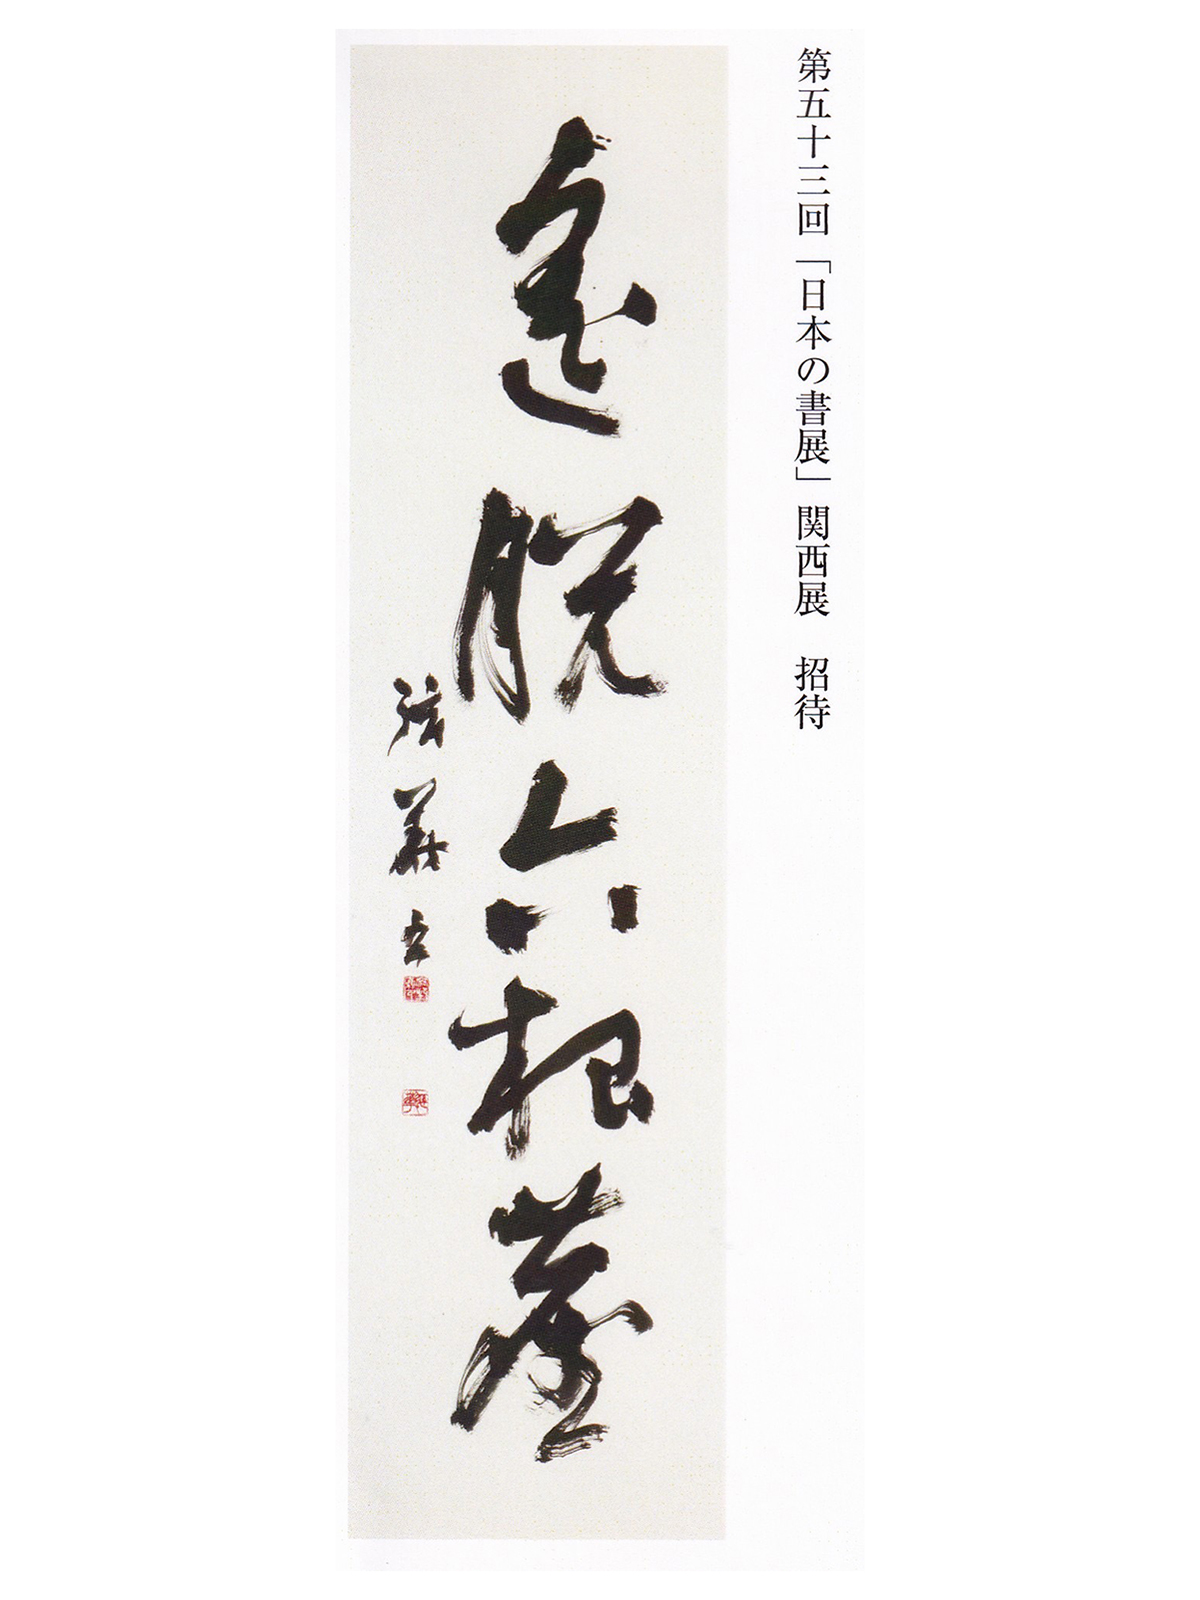 第五十三回「日本の書展」関西展　招待
遠脱六根塵